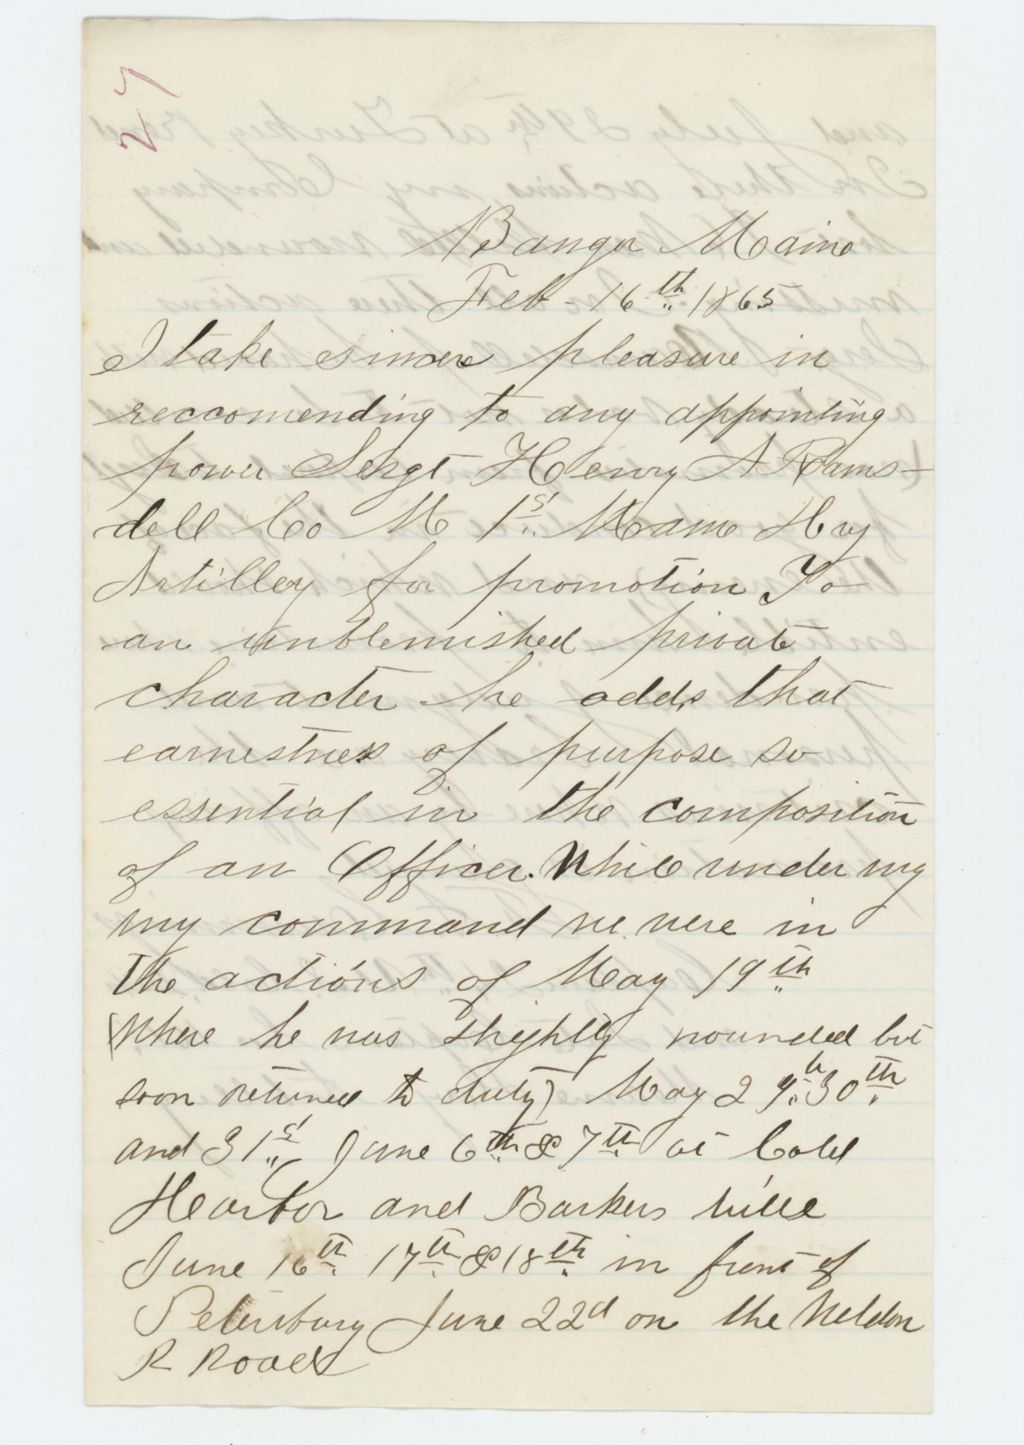 Bangor Maine
Feb - 16th 1865
I take sincere pleasure in
reccomending to any appointing
power Sergt Henry A Rams-
dell Co M 1st Maine Hvy
Artilley for promotion To
an unblemished private
character he adds that
earnestness of purpose so
essential in the composition
of an Officer. While under my
my command we were in
the actions of May 19th
(Where he was slightly wounded but
soon returned to duty) May 29th 30th
and 31st, June 6th & 7th at Cold
Harbor and Barkers hills
June 16th 17th & 18th in front of
Petersburg June 22d on the Weldon
R Road